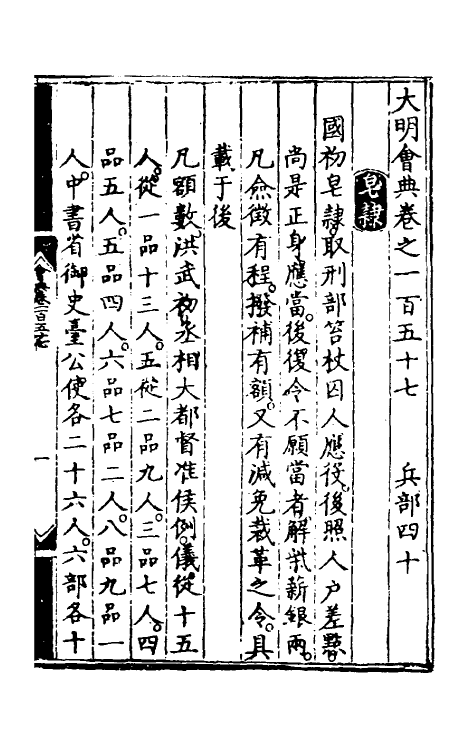 大明會典卷之一百五十七　兵部四十
皂隷
國初皂隷取刑部笞杖囚人應役。後照人户差點。
尚是正身應當。後復令不願當者解柴薪銀兩。
凡僉徵有程。撥補有額。又有減免裁革之令。具
載于後
凡額數。洪武初丞相大都督准侯例。儀從十五
人。從一品十三人。正從二品九人。三品七人。四
品五人。五品四人。六品七品二人。八品九品一
人。中書省御史臺公使各二十六人。六部各十
會典卷一百五十七
一